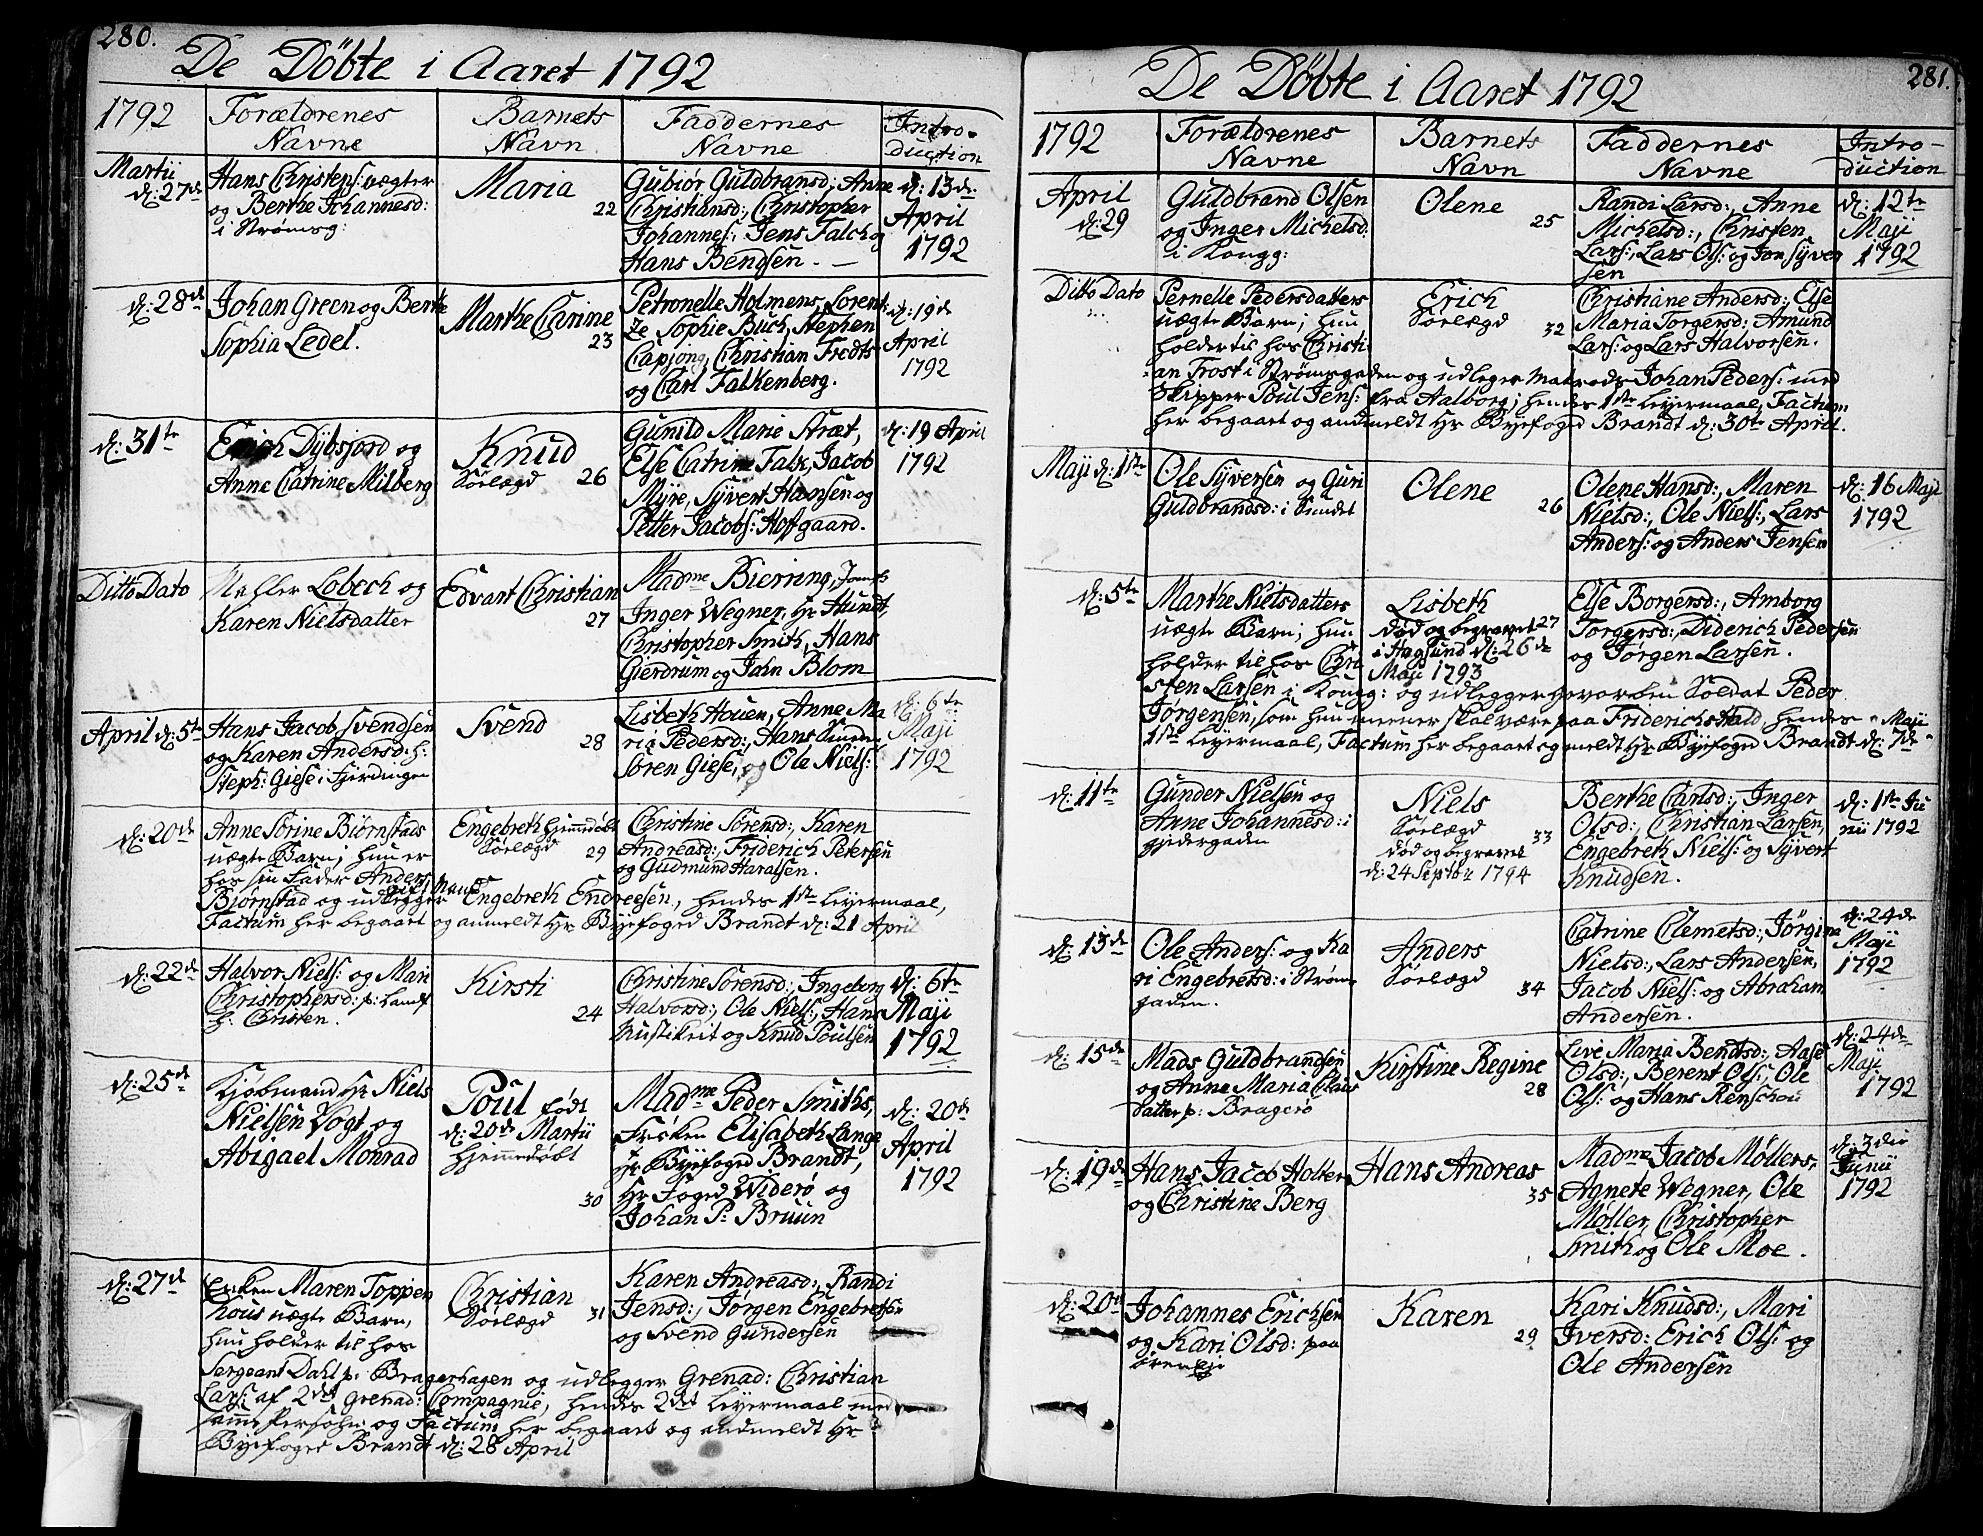 280.
De Döbte i Aaret 1792
1792
Forældrenes
Navne
Barnets
Navn
Faddernes
Navne
Intro-
duction
Martii
d: 27de
Hans Christens: vægter
og Berthe Johannesd:
i Strømsg:
Maria
22
Gubiör Guldbransd:, Anne
Christiansd:, Christopher
Johannes:, Jens Falch og
Hans Bendsen. —
d: 13de
April
1792
d: 28de
Johan Green og Berthe
Sophia Ledel.
Marthe Carine
23
Petronelle Holmens, Lorent-
ze Sophie Buch, Stephen
Capjong, Christian Fredts
og Carl Falkenberg.
d: 19de
April
1792
d: 31te
Erich Dybsjord og
Anne Catrine Milberg
Knud
Sörlægd 26
Gunild Marie Stræt,
Else Catrine Falk, Jacob
Myre, Syvert Hansen og
Petter Jacobs: Hofgaard.
d: 19 April
1792
Ditto Dato
Lobech og
Karen Nielsdatter
Edvart Christian
27
Madme Bierring, Jomfr
Inger Wegner, Hr Hundt,
Christopher Smith, Hans
Gierdrum og Jahn Blom
April d: 5te
Hans Jacob Svendsen
og Karen Andersd: h:
Steph: Giese i Fjerdingen
Svend
28
Lisbeth Houen, Anne Ma
ria Pedersd:, Hans
Sören Giese, og Ole Niels:
d: 6te
Maji
1792
d: 20de
Anne Sörine Biörnstads
uægte Barn; hun er
hos sin Fader Anders
Biørnstad og udlegger Engebreth Endresen, hendes 1ste leyermaal,
Factum her begaaet og anmeldt Hr Byefoged Brandt d: 21 April
Engebreth hiemedöbt
Sörlægd
29
Christine Sörensd:, Karen
Andreasd:, Friderich Petersen
og Gudmund Haralsen.
d: 22de
Halvor Niels: og Mari
Christophersd: p: Landf
h: Christen.
Kirsti
24
Christine Sörensd:, Ingeborg
Halvorsd:, Ole Niels:, Hans
Mustikrit og Knud Poulsen
d: 6te
Maji
1792
d: 25de
Kjøbmand Hr Niels
Nielsen Vogt og
Abigael Monrad
Poul født
d: 20de Martii
hjemmedöbt
30
Madme Peder Smiths,
Frøken Elisabeth Lange
Hr Byefoged Brandt,
Hr Foged Widerø og
Johan P: Bruun
d: 20de
April
1792
d: 27de
Enken Maren Toppen
hous uægte Barn,
hun holder til hos
Sergeant Dahl p: Bragerhagen og udlegger Grenad: Christian
Lars: af 2det Grenad: Compagnie, hendes 2det leyermaal med
samme Persohn og Factum her begaaet og anmeldt Hr
Byefoged Brandt d: 28 April
Christian
Sörlægd
31
Karen Andreasd:, Randi
Jensd:, Jørgen Engebretsen
og Svend Gundersen
281.
De Döbte i Aaret 1792
1792
Forældrenes
Navne
Barnets
Navn
Faddernes
Navne
Intro-
duction
April
d: 29
Guldbrand Olsen
og Inger Michelsd.
i Kongg:
Olene
25
Randi Larsd:, Anne
Michelsd:, Christen
Lars:, Lars Ols: og Jon Syver
sen
d: 12te
Maji
1792
Ditto Dato
Pernelle Pedersdatters
uægte Barn; hun
holder til hos Christi-
an Frost i Strømsgaden og udleger Matrods Johan Peders: med
Skipper Poul Jens: fra Aalborg; hendes 1ste leyermaal, Factum
her begaaet og anmeldt Hr Byefoged Brandt d: 30te April.
Erich
Sörlægd
32
Christiane Andersd:, Else
Maria Torgersd: Amund
Lars: og Lars Halvorsen.
Maji d: 1ste
Ole Syversen og Guri
Guldbrandsd: i Sundet
Olene
26
Olene Hansd:, Maren
Nielsd:, Ole Niels:, Lars
Anders: og Anders Jensen
d: 16 Maji
1792
d: 5te
Marthe Nielsdatters
uægte Barn; hun
holder til hos Chri-
sten Larsen i Kongg: og udlegger hvervben Soldat Peder
Jørgensen, som hun meener skal være paa Friderichshald, hendes
1ste leyermaal, Factum her begaaet og meldt Hr Byefoged Brandt d: 7de Maji
Lisbeth
død og begravet 27
i Hagsund d: 26de
Maji 1793
Else Borgersd:, Amborg
Torgersd:, Diderich Pedersen
og Jørgen Larsen.
d: 11te
Gunder Nielsen og
Anne Johannesd: i
gjedergaden
Niels
Sörlægd
33
død og begravet
d: 24 Septbr 1794
Berthe Carlsd:, Inger
Olsd:, Christian Larsen,
Engebreth Niels: og Syvert
Knudsen.
d: 1ste Ju
nii 1792
d: 13de
Ole Anders: og Ka
ri Engebretsd: i Strøms
gaden.
Anders
Sörlægd
34
Catrine Clemetsd:, Jørgine
Nielsd:, Lars Andersen,
Jacob Niels: og Abraham
Andersen.
d: 24de
Maji
1792
d: 15de
Mads Guldbrandsen
og Anne Maria Claus
datter p: Bragerø
Kirstine Regine
28
Live Maria Bendtsd:, Aase
Olsd:, Berent Ols:, Ole
Ols: og Hans Renschou
d: 24de
Maji
1792
d: 19de
Hans Jacob Holter
og Christine Berg
Hans Andreas
35
Madme Jacob Møllers,
Agnete Wegner, Ole
Møller, Christopher
Smith og Ole Moe.
d: 3die
Junii
1792
d: 20de
Johannes Erichsen
og Kari Olsd: paa
Karen
29
Kari Knudsd:, Mari
Iversd: Erich Ols: og
Ole Andersen